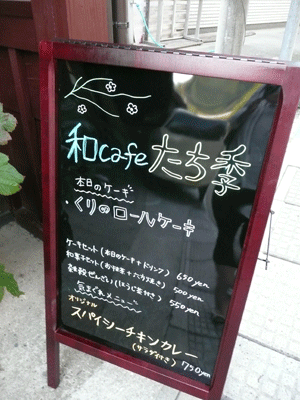 和cafeたち季
本日のケーキ
・くりのロールケーキ
ケーキセット(本日のケーキ+ドリンク) 650yen
和菓子セット(お抹茶+六方焼き) 500yen
雑穀ぜんざい(ほうじ茶付き) 550yen
気まぐれメニュー
オリジナル
スパイシーチキンカレー
(サラダ付き) 750yen